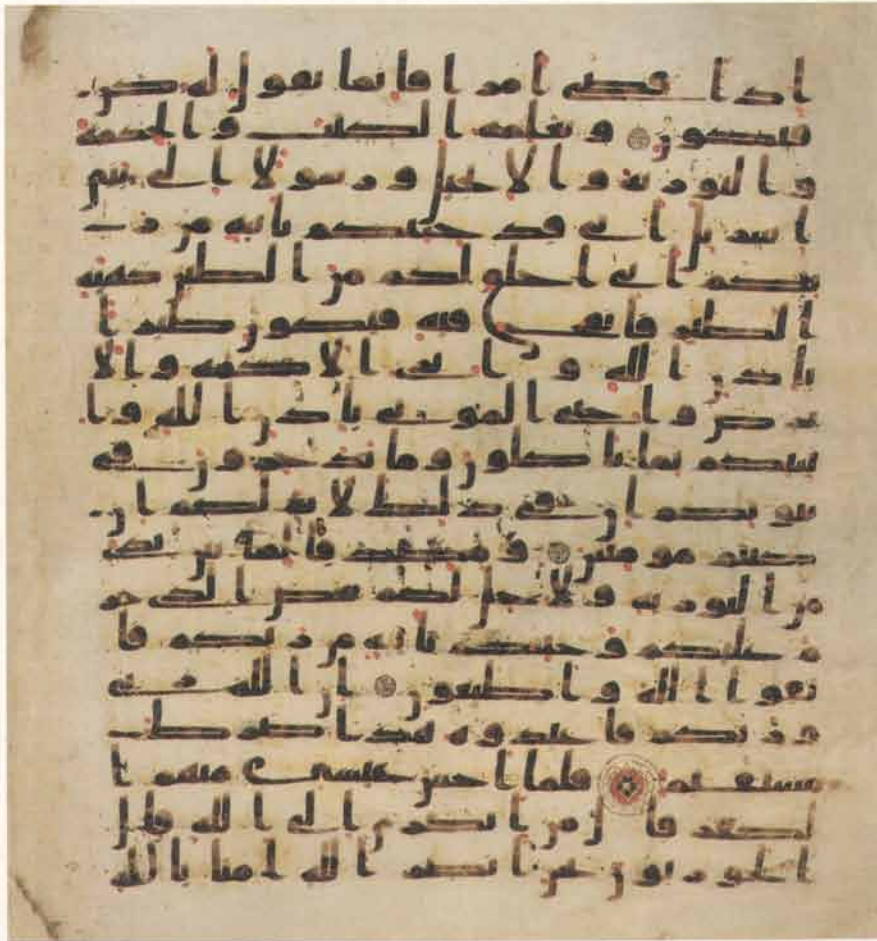 اذا قضى امرا فانما يقول له كن
فيكون ويعلمه الكتب والحكمة
والتورية والانجيل ورسولا الى بني
اسريل اني قد جئتكم باية من ر
بكم اني اخلق لكم من الطين كهية
الطير فانفخ فيه فيكون طيرا
باذن الله وابرى الاكمه والا
برص واحي الموتى باذن الله وا
نبيكم بما تاكلون وما تدخرون في
بيوتكم ان في ذلك لاية لكم ان
كنتم مومنين ومصدقا لما بين يدي
من التورية ولاحل لكم بعض الذي حر
م عليكم وجئتكم باية من ربكم فا
تقوا الله واطيعون ان الله ربي
وربكم فاعبدوه هذا صرط
مستقيم فلما احس عيسى منهم ا
لكفر قال من انصاري الى الله قال
الحواريون نحن انصار الله امنا بالله